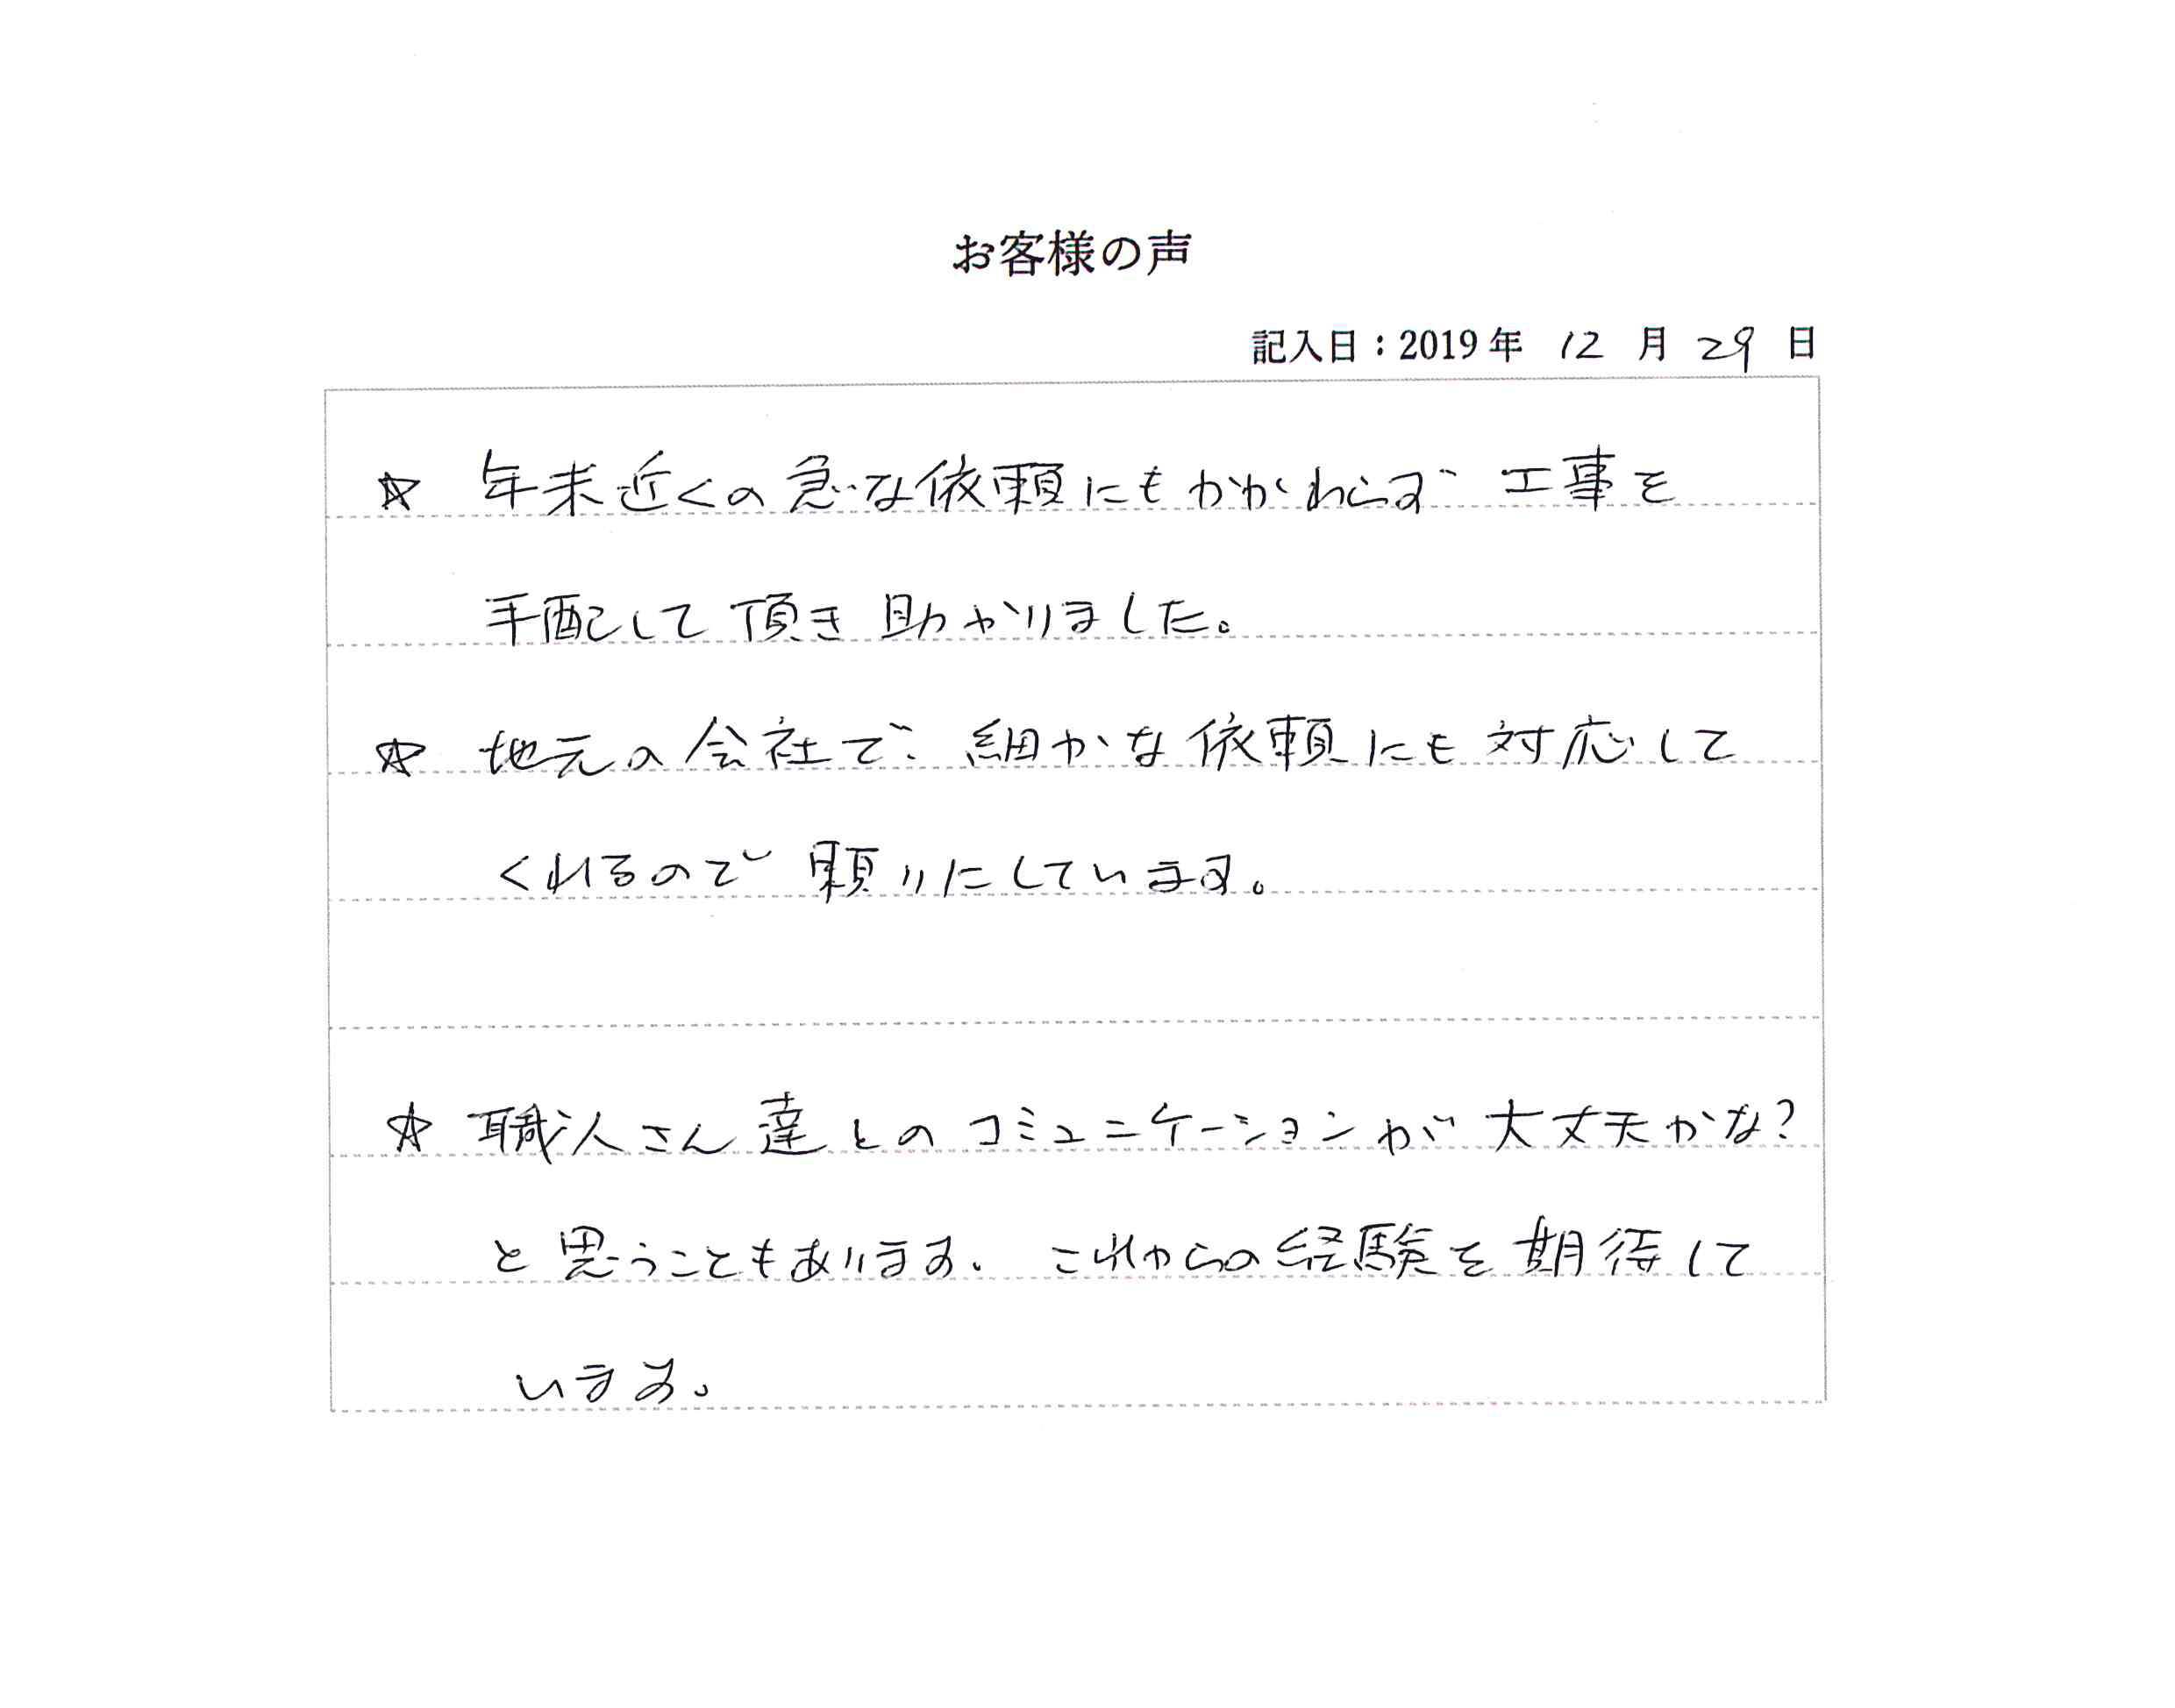 お客様の声
記入日：2019年 12 月 29 日
☆ 年末近くの急な依頼にもかかわらず 工事を
手配して頂き助かりました。
☆ 地元の会社で、細かな依頼にも対応して
くれるので頼りにしています。
☆ 職人さん達とのコミュニケーションが大丈夫かな?
と思うこともあります。これからの経験を期待して
います。